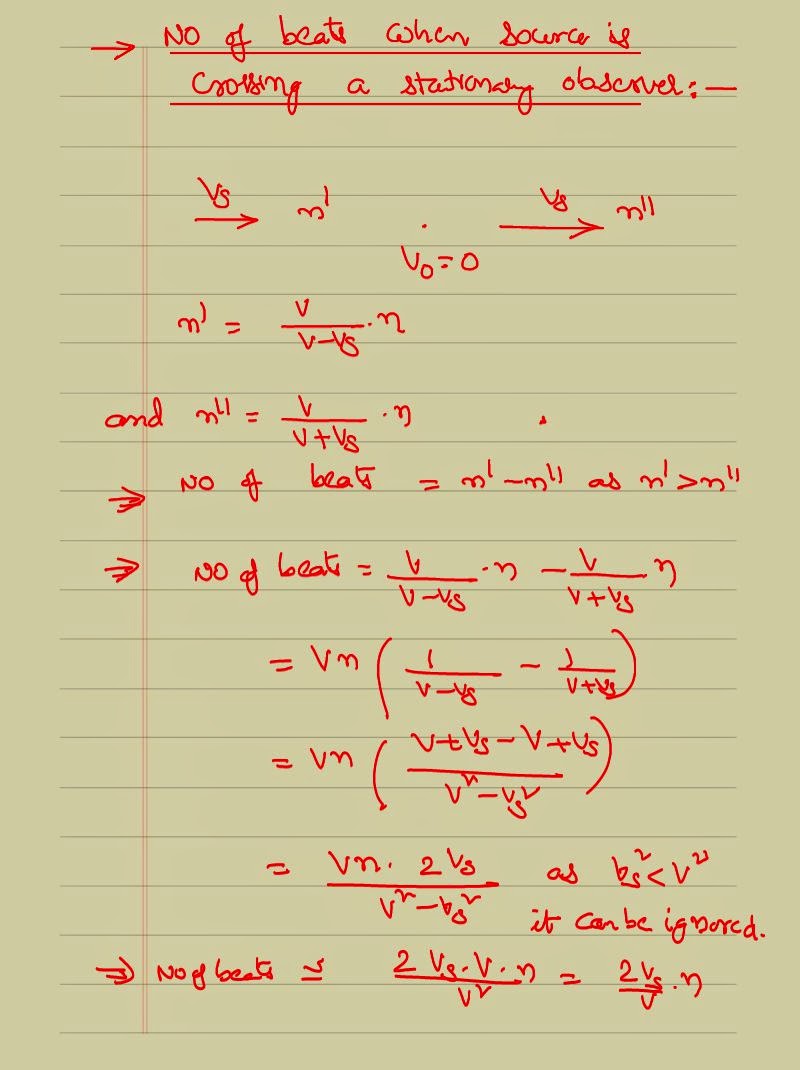 → No of beats when source is
crossing a stationary observer:—
Vs → n' . Vs → n''
V₀=0
n' = V/(V-Vs) · n
and n'' = V/(V+Vs) · n
⇒ No of beats = n' - n'' as n' > n''
⇒ No of beats = V/(V-Vs) · n - V/(V+Vs) n
= Vn (1/(V-Vs) - 1/(V+Vs))
= Vn ((V+Vs-V+Vs)/(V²-Vs²))
= Vn. 2Vs/(V²-Vs²) as Vs² < V²
it can be ignored.
⇒ No of beats ≃ 2Vs.V.n/V² = 2Vs/V · n